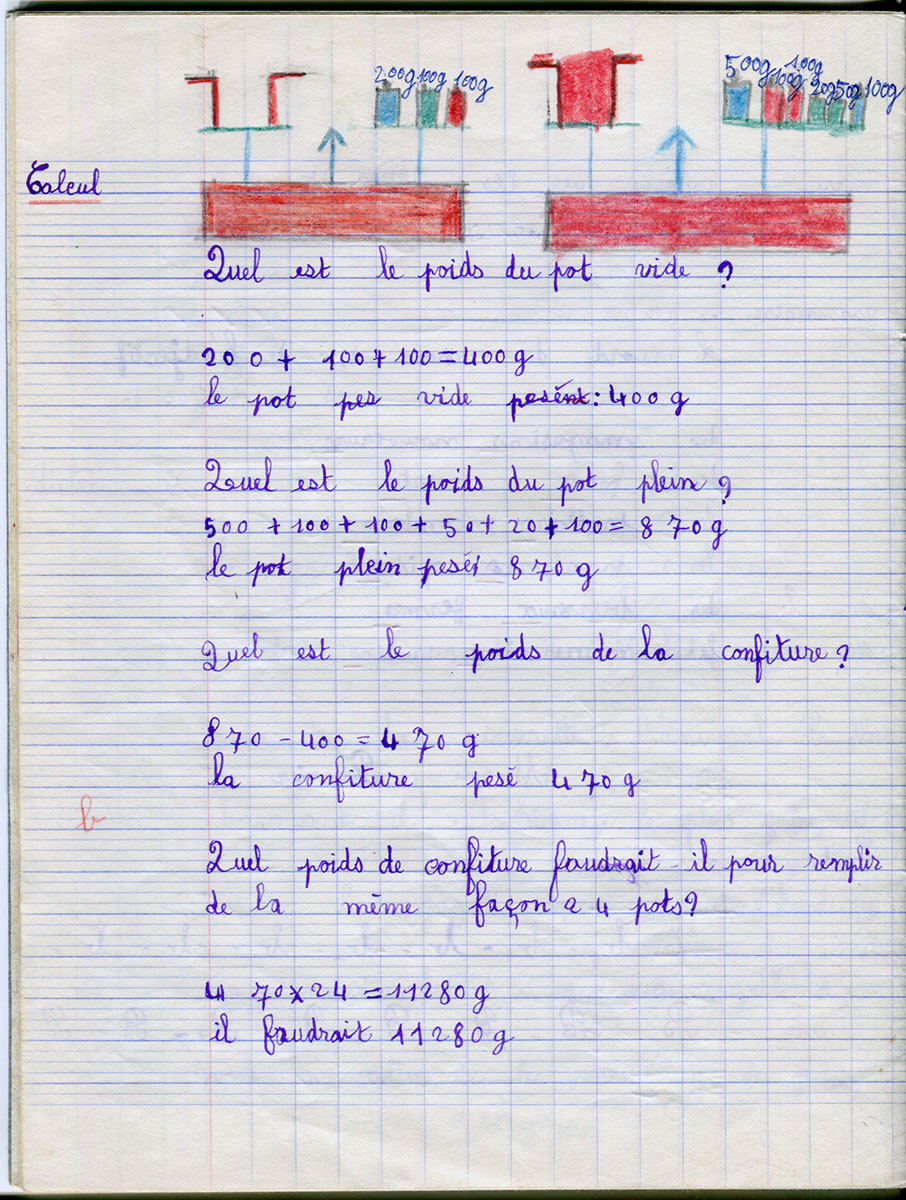 200g 100g 100g
500g 100g 100g 20g 50g 100g
Calcul
Quel est le poids du pot vide ?
200 + 100 + 100 = 400 g
le pot pes vide : 400 g
Quel est le poids du pot plein ?
500 + 100 + 100 + 50 + 20 + 100 = 870 g
le pot plein pesé 870 g
Quel est le poids de la confiture ?
870 - 400 = 470 g
la confiture pesé 470 g
b
Quel poids de confiture faudrait-il pour remplir
de la même façon 24 pots ?
470 x 24 = 11280 g
il faudrait 11280 g